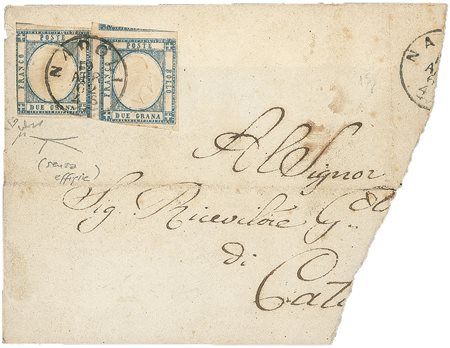 POSTE POSTE
FRANCO BOLLO FRANCO BOLLO
DUE GRANA DUE GRANA
NAPOLI
NA
(senza
effigie)
Al Signor
Sig. Ricevitore G
di
Cat